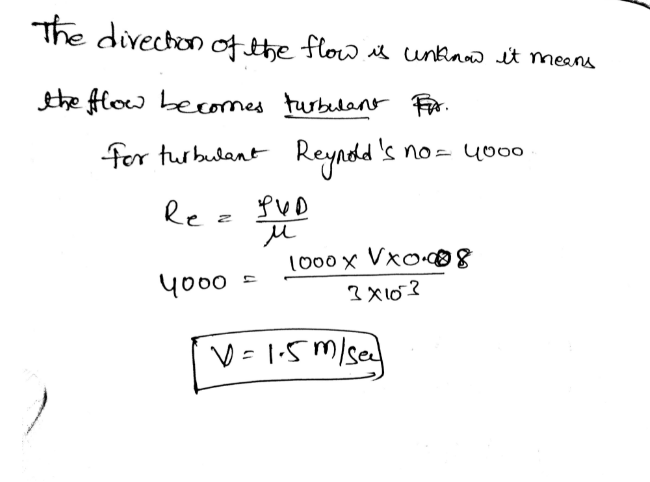 The direction of the flow is unknow it means
the flow becomes turbulant
for turbulant Reynold's no = 4000
Re = ρVD / μ
4000 = 1000 x V x 0.008 / 3 x 10-3
V = 1.5 m/sec